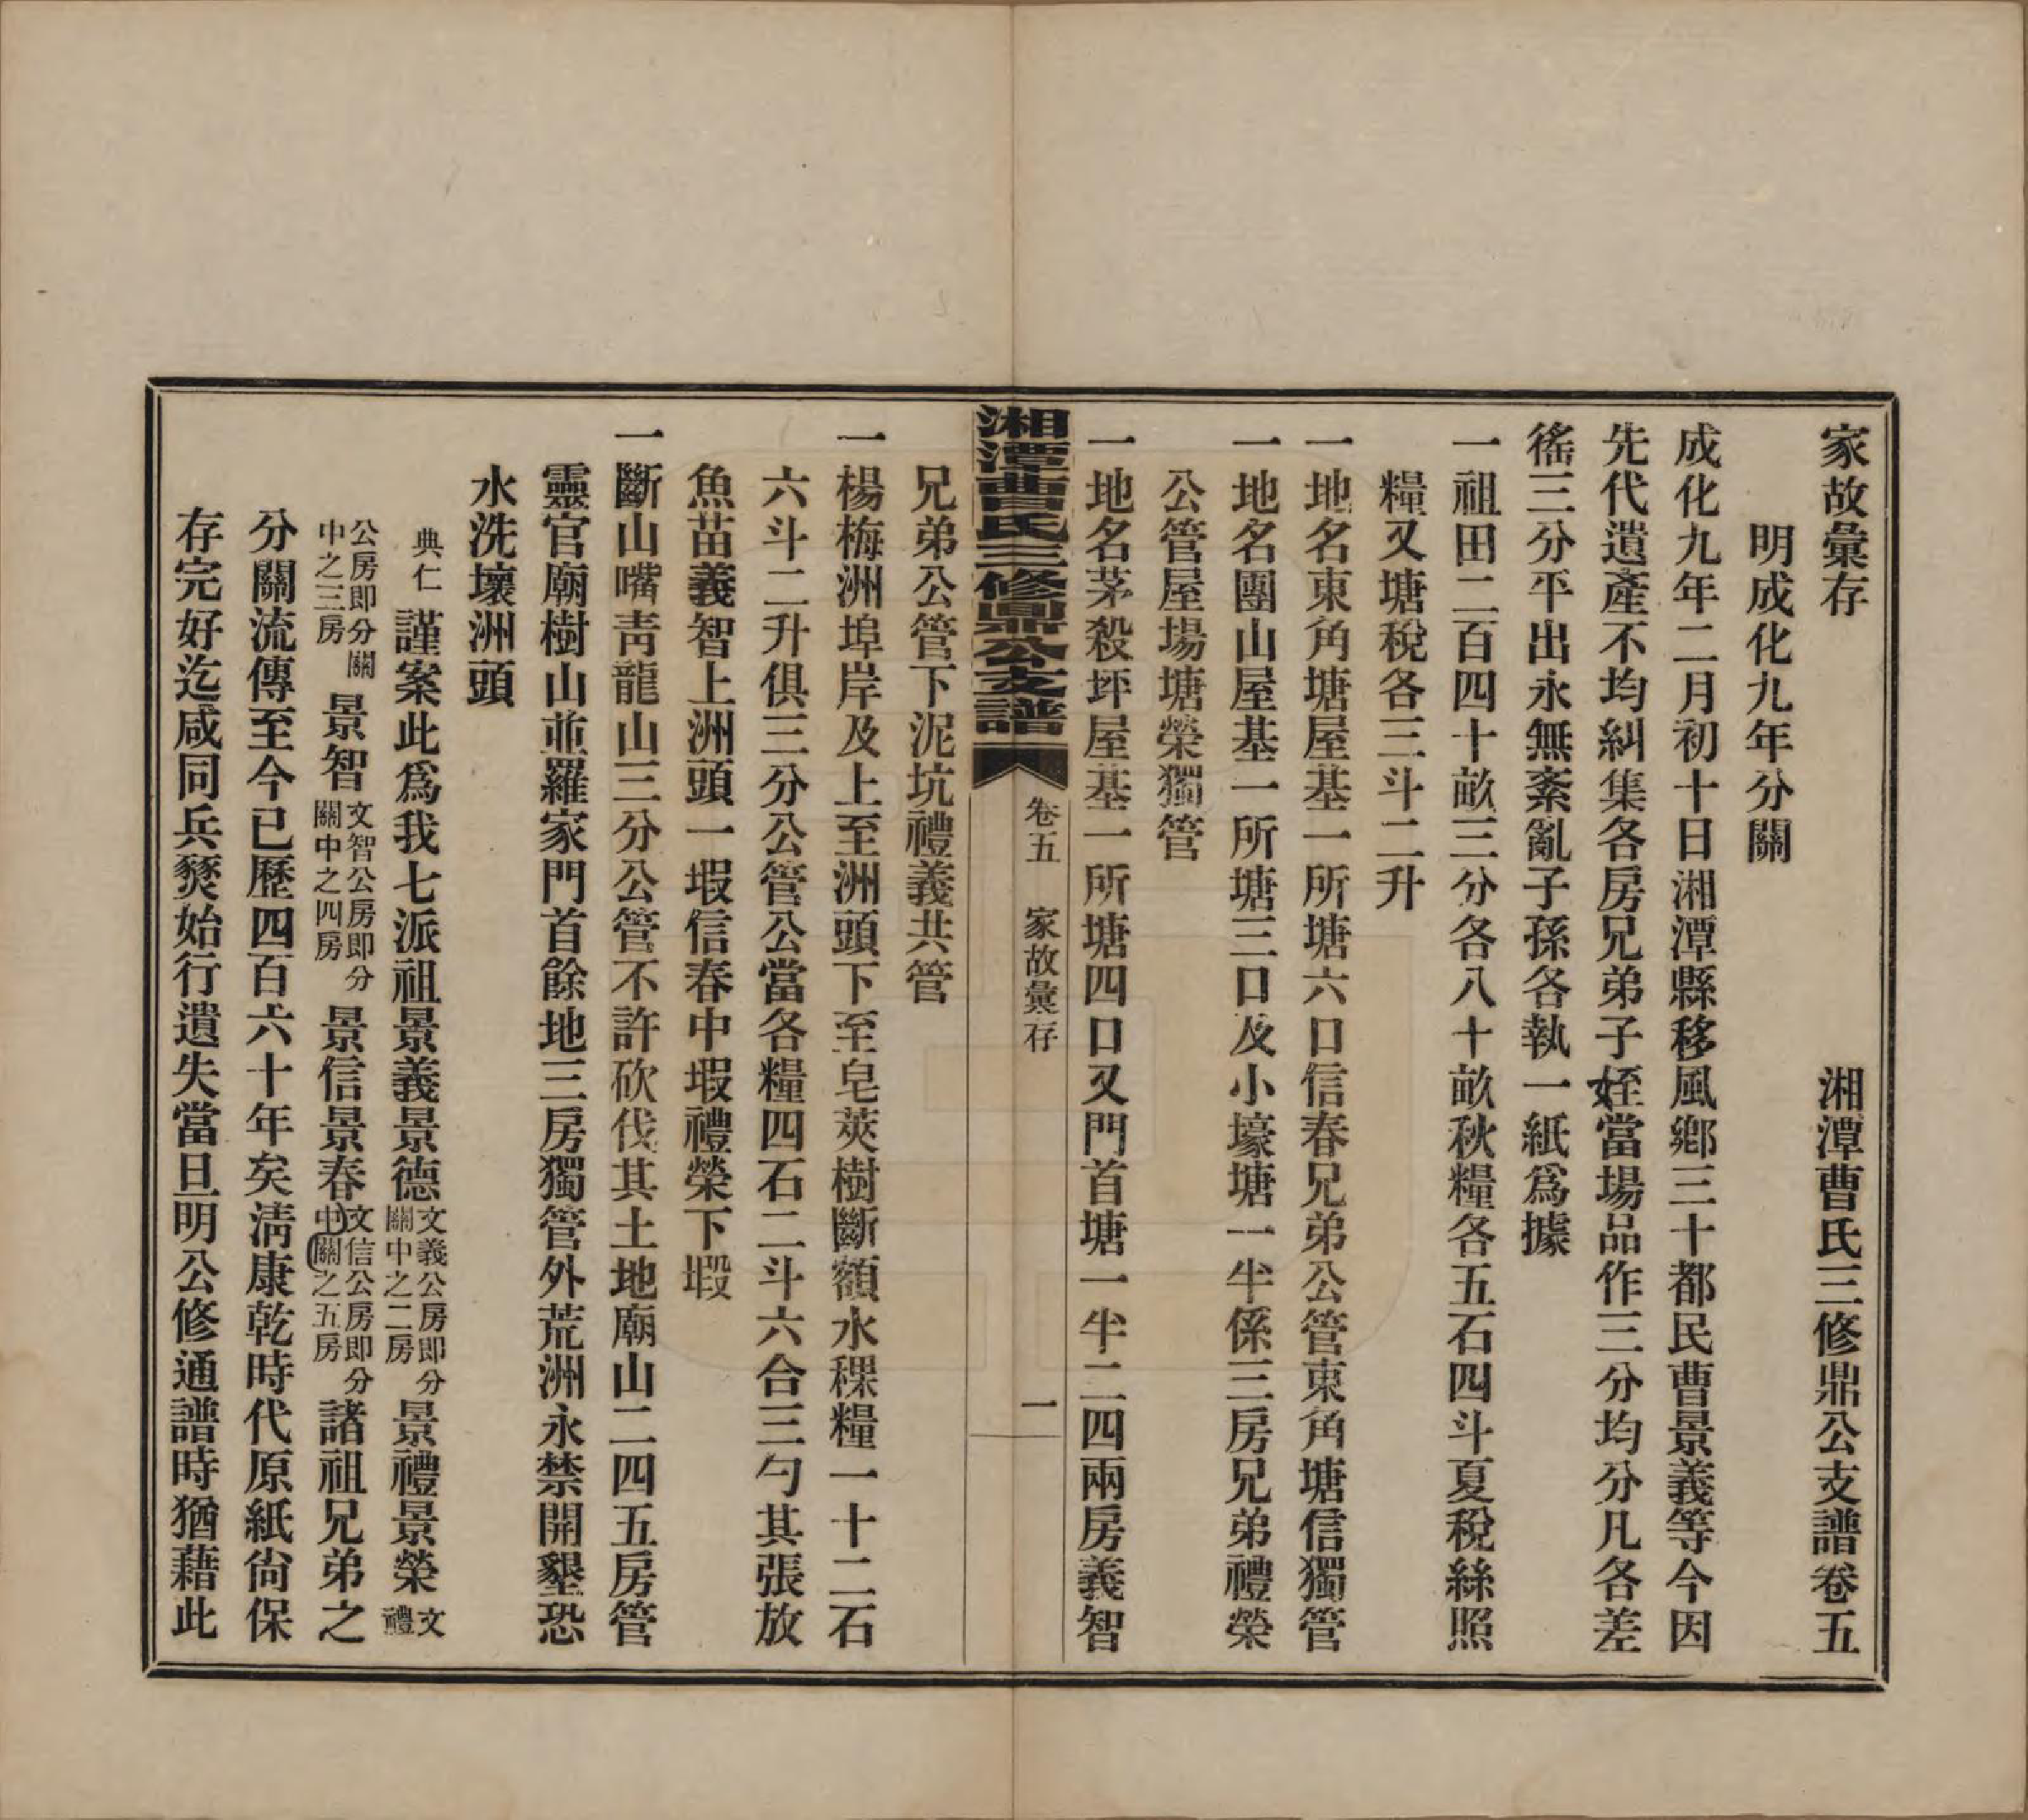 家故彙存 湘潭曹氏三修鼎公支譜卷五
明成化九年分關
成化九年二月初十日湘潭縣移風鄉三十都民曹景義等今因
先代遺產不均糾集各房兄弟子姪當場品作三分均分凡各差
徭三分平出永無紊亂子孫各執一紙爲據
一祖田二百四十畝三分各八十畝秋糧各五石四斗夏稅絲照
糧又塘稅各三斗二升
一地名東角塘屋基一所塘六口信春兄弟公管東角塘信獨管
一地名團山屋基一所塘三口及小壕塘一半係三房兄弟禮榮
公管屋場塘榮獨管
一地名茅殺坪屋基一所塘四口又門首塘一半二四兩房義智
湘潭曹氏三修鼎公支譜 卷五 家故彙存 一
兄弟公管下泥坑禮義共管
一楊梅洲埠岸及上至洲頭下至皂莢樹斷額水稞糧一十二石
六斗二升俱三分公管公當各糧四石二斗六合三勺其張放
魚苗義智上洲頭一塅信春中塅禮榮下塅
一斷山嘴靑龍山三分公管不許砍伐其土地廟山二四五房管
靈官廟樹山並羅家門首餘地三房獨管外荒洲永禁開墾恐
水洗壞洲頭
典仁謹案此爲我七派祖景義景德文義公房即分關中之二房景禮景榮文禮
公房即分關中之三房景智文智公房即分關中之四房景信景春文信公房即分中關之五房諸祖兄弟之
分關流傳至今已歷四百六十年矣淸康乾時代原紙尙保
存完好迄咸同兵燹始行遺失當旦明公修通譜時猶藉此